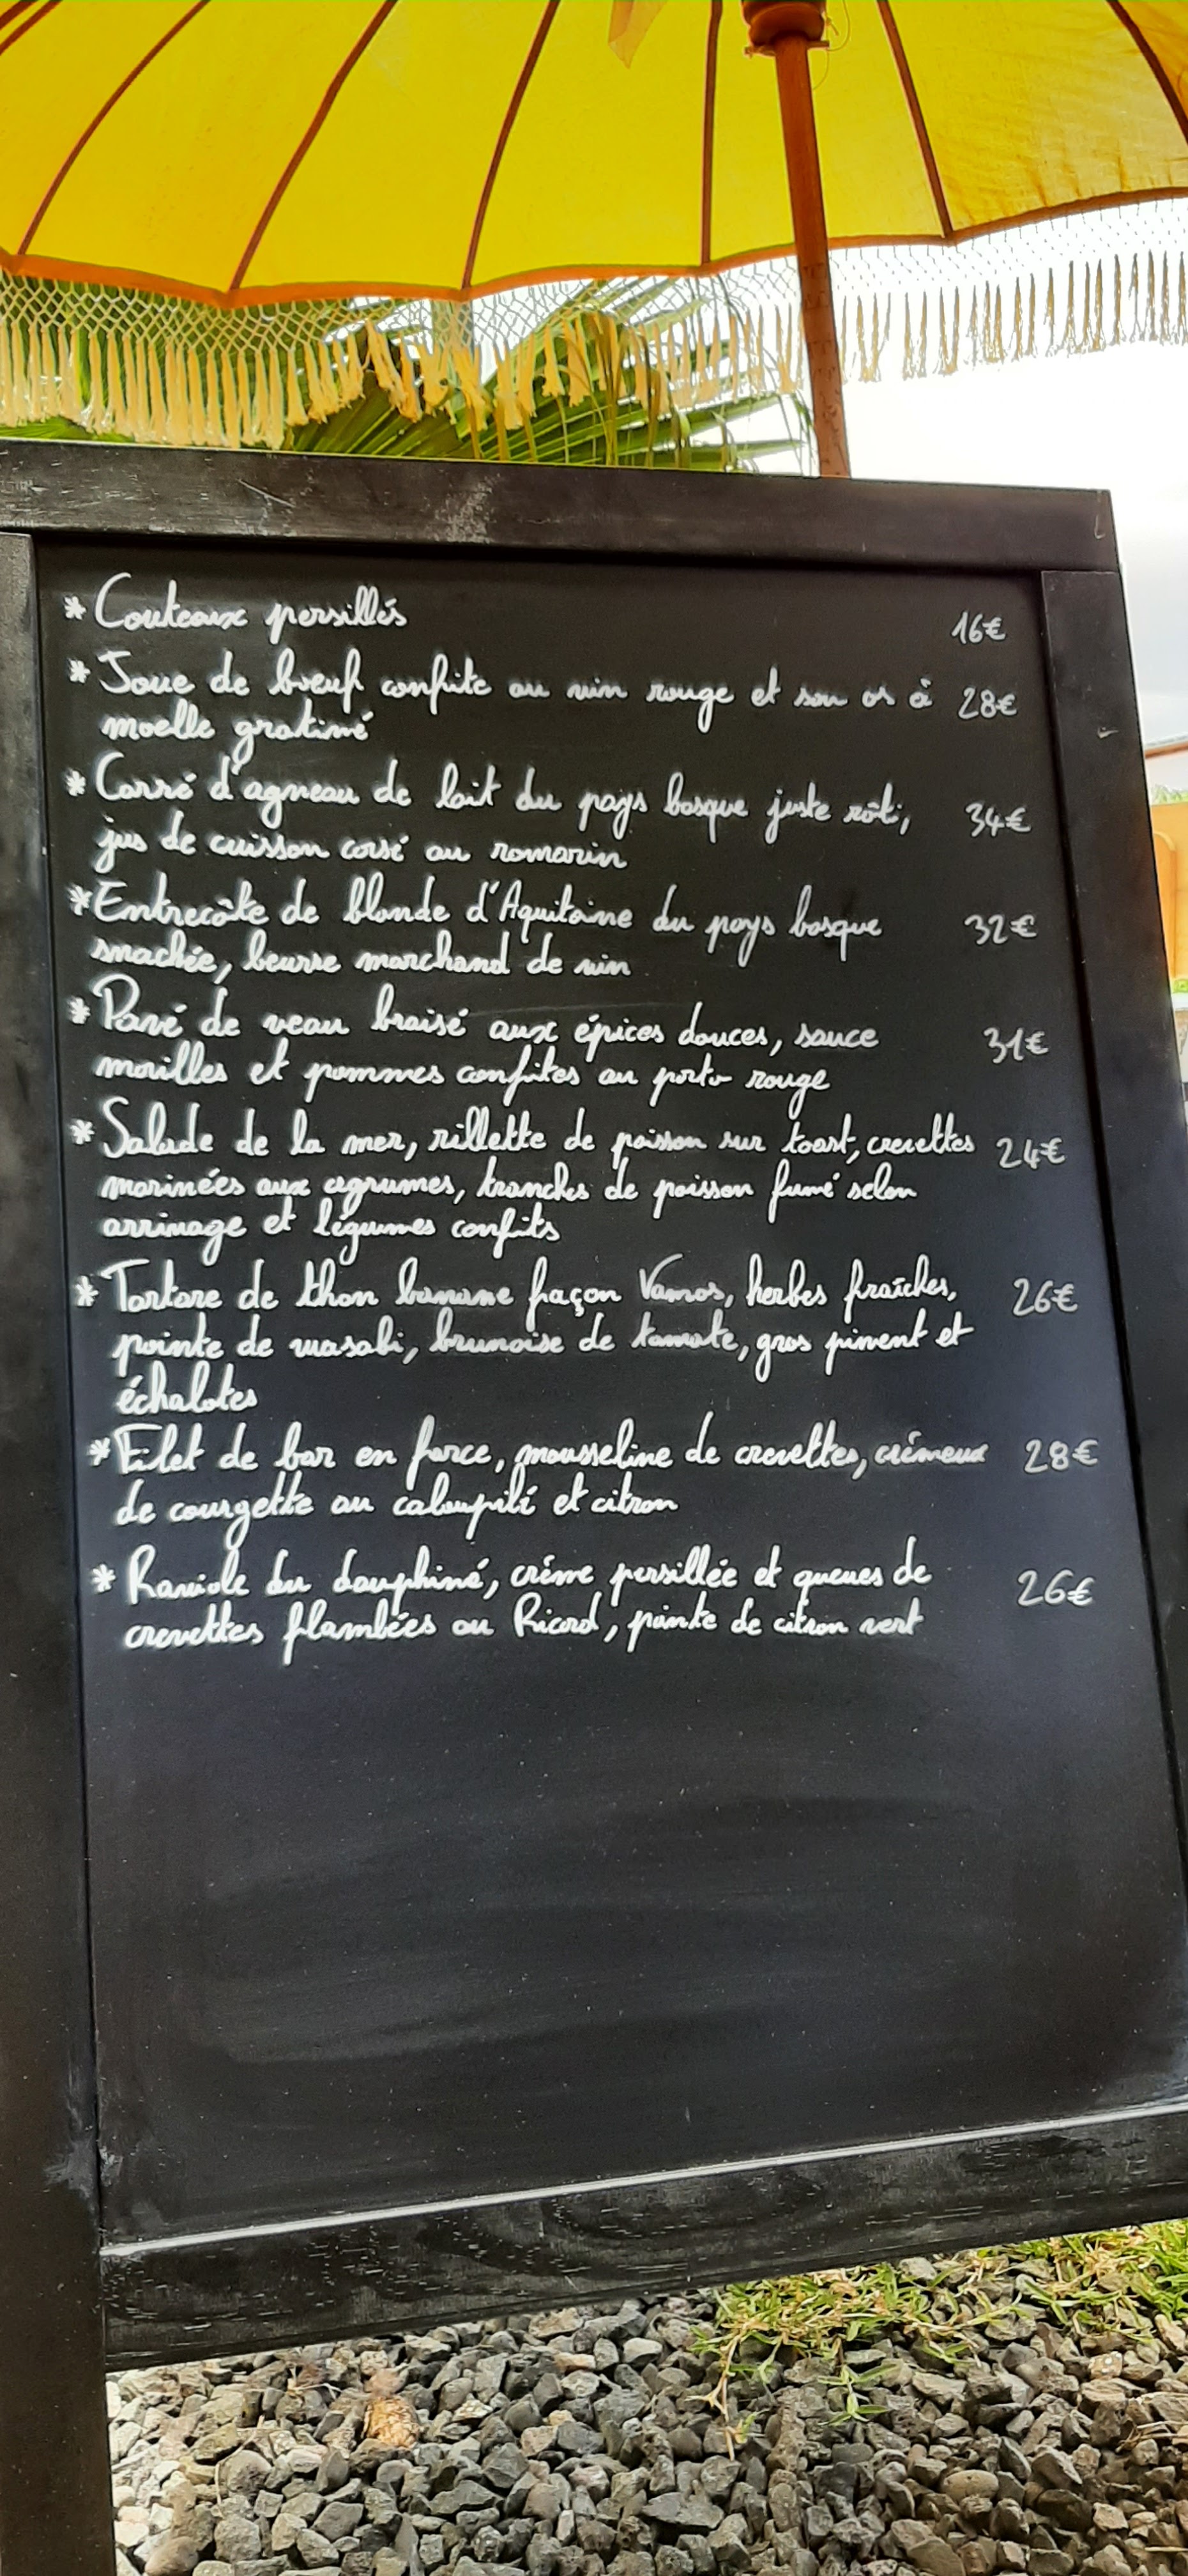 * Couteaux persillés 16€
* Joue de bœuf confite au vin rouge et son os à 28€
moelle gratiné
* Carré d'agneau de lait du pays basque juste rôti, 34€
jus de cuisson corsé au romarin
* Entrecôte de blonde d'Aquitaine du pays basque 32€
snackée, beurre marchand de vin
* Pavé de veau braisé aux épices douces, sauce 31€
morilles et pommes confites au porto rouge
* Salade de la mer, rillette de poisson sur toast, crevettes 24€
marinées aux agrumes, tranches de poisson fumé selon
arrivage et légumes confits
* Tartare de thon banane façon Vamos, herbes fraîches, 26€
pointe de wasabi, brunoise de tomate, gros piment et
échalotes
* Filet de bar en farce, mousseline de crevettes, crémeux 28€
de courgette au caloupilé et citron
* Raviole du dauphiné, crème persillée et queues de 26€
crevettes flambées au Ricard, pointe de citron vert